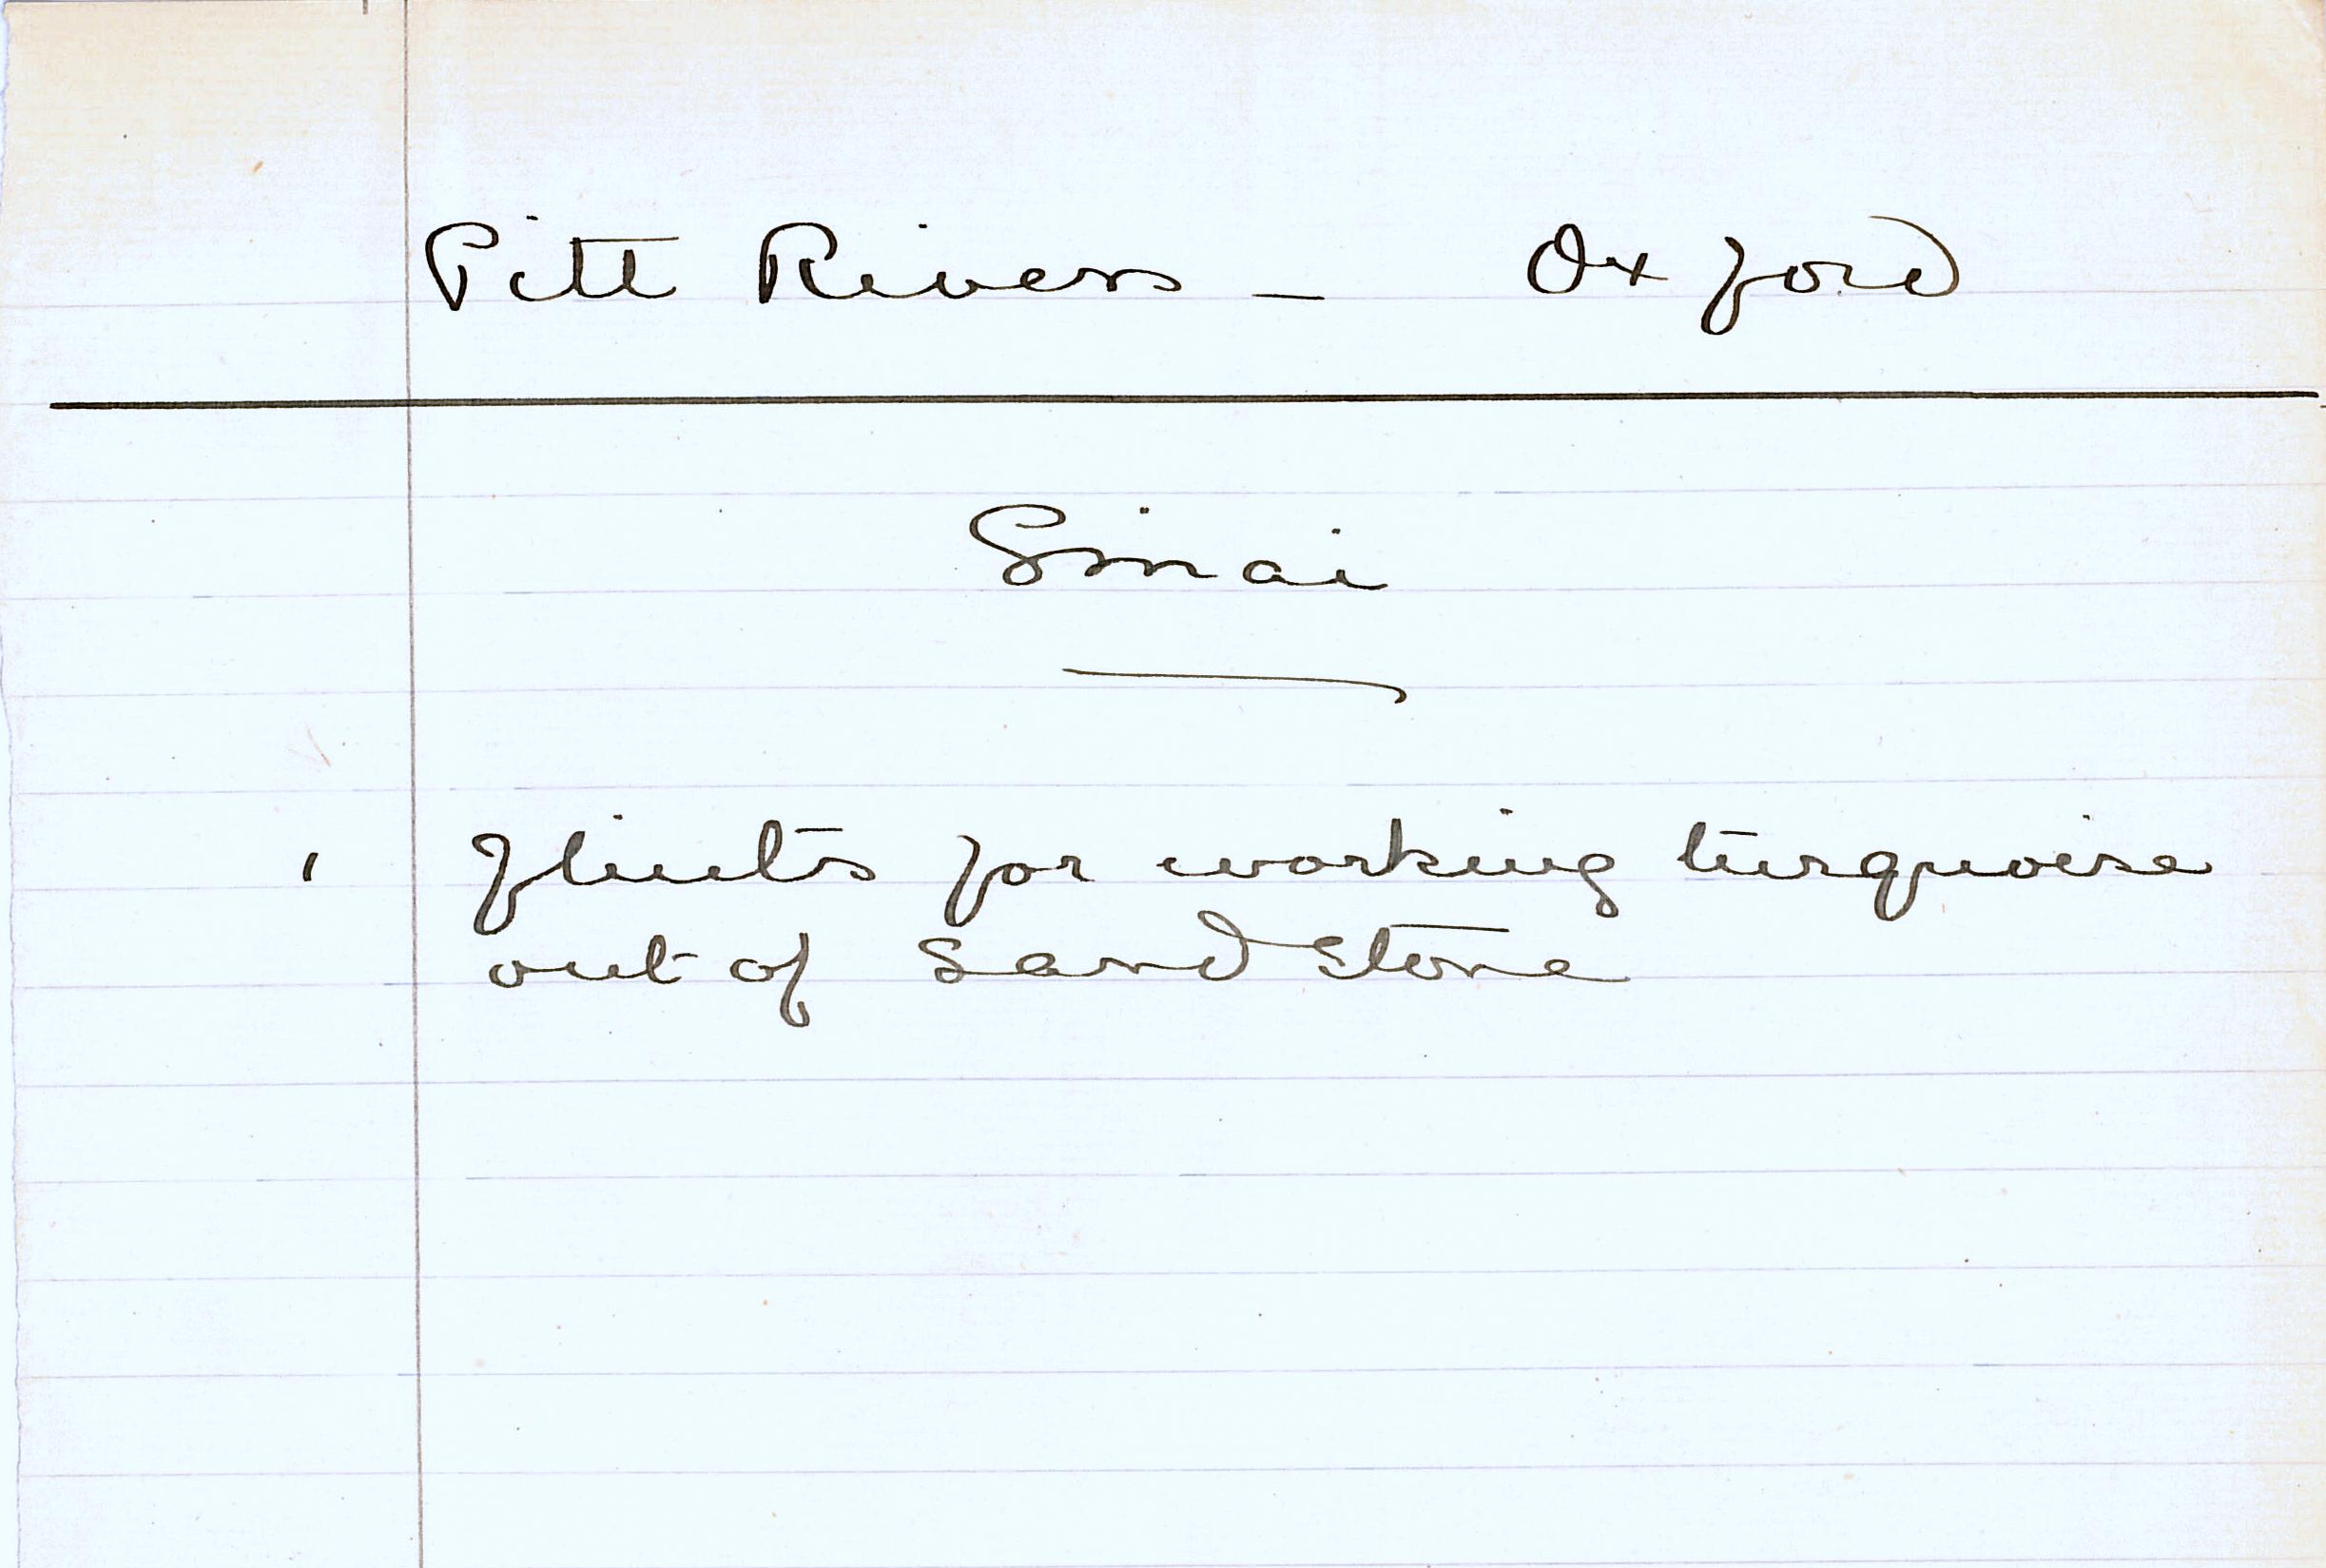 Pitt Rivers - Oxford
Sinai
1 flints for working turquoise
out of Sandstone